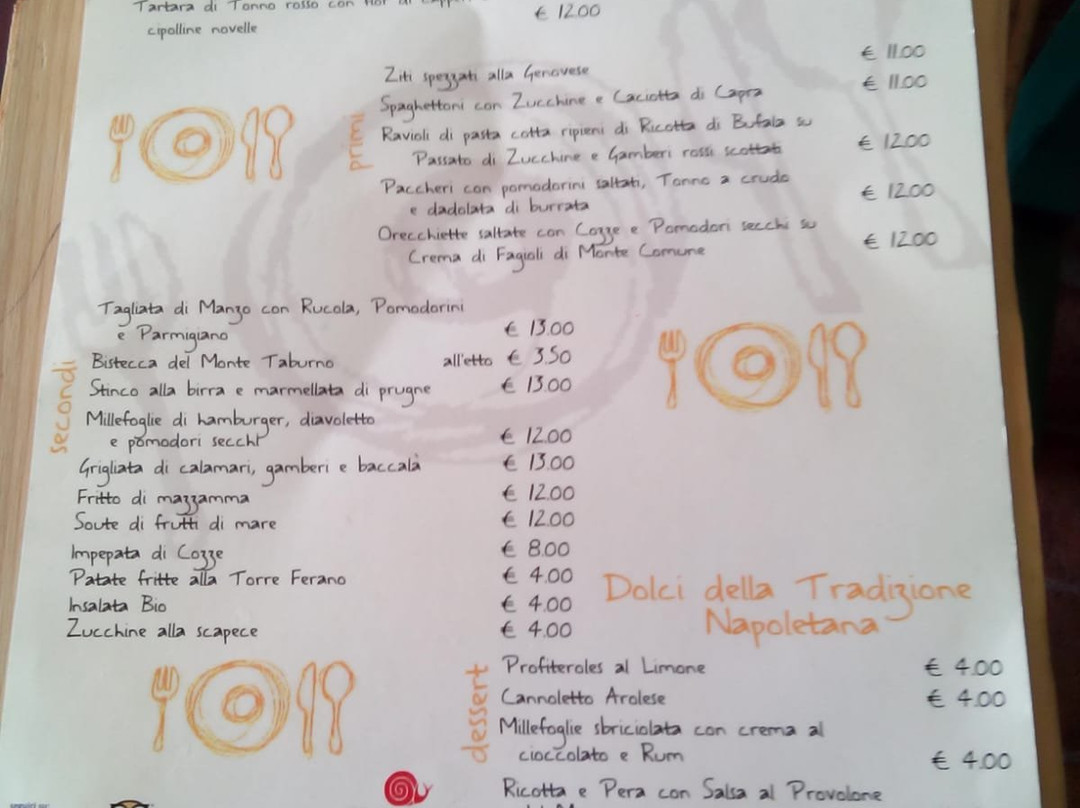 Tartara di Tonno rosso con fior di
€ 12.00
cipolline novelle
primi
Ziti spezzati alla Genovese € 11.00
Spaghettoni con Zucchine e Caciotta di Capra € 11.00
Ravioli di pasta cotta ripieni di Ricotta di Bufala su
Passato di Zucchine e Gamberi rossi scottati € 12.00
Paccheri con pomodorini saltati, Tonno a crudo
e dadolata di burrata € 12.00
Orecchiette saltate con Cozze e Pomodori secchi su
Crema di Fagioli di Monte Comune € 12.00
secondi
Tagliata di Manzo con Rucola, Pomodorini
e Parmigiano € 13.00
Bistecca del Monte Taburno all'etto € 3.50
Stinco alla birra e marmellata di prugne € 13.00
Millefoglie di hamburger, diavoletto
e pomodori secchi € 12.00
Grigliata di calamari, gamberi e baccalà € 13.00
Fritto di mazzamma € 12.00
Soute di frutti di mare € 12.00
Impepata di Cozze € 8.00
Patate fritte alla Torre Ferano € 4.00
Insalata Bio € 4.00
Zucchine alla scapece € 4.00
Dolci della Tradizione
Napoletana
dessert
Profiteroles al Limone € 4.00
Cannoletto Arolese € 4.00
Millefoglie sbriciolata con crema al
cioccolato e Rum € 4.00
Ricotta e Pera con Salsa al Provolone